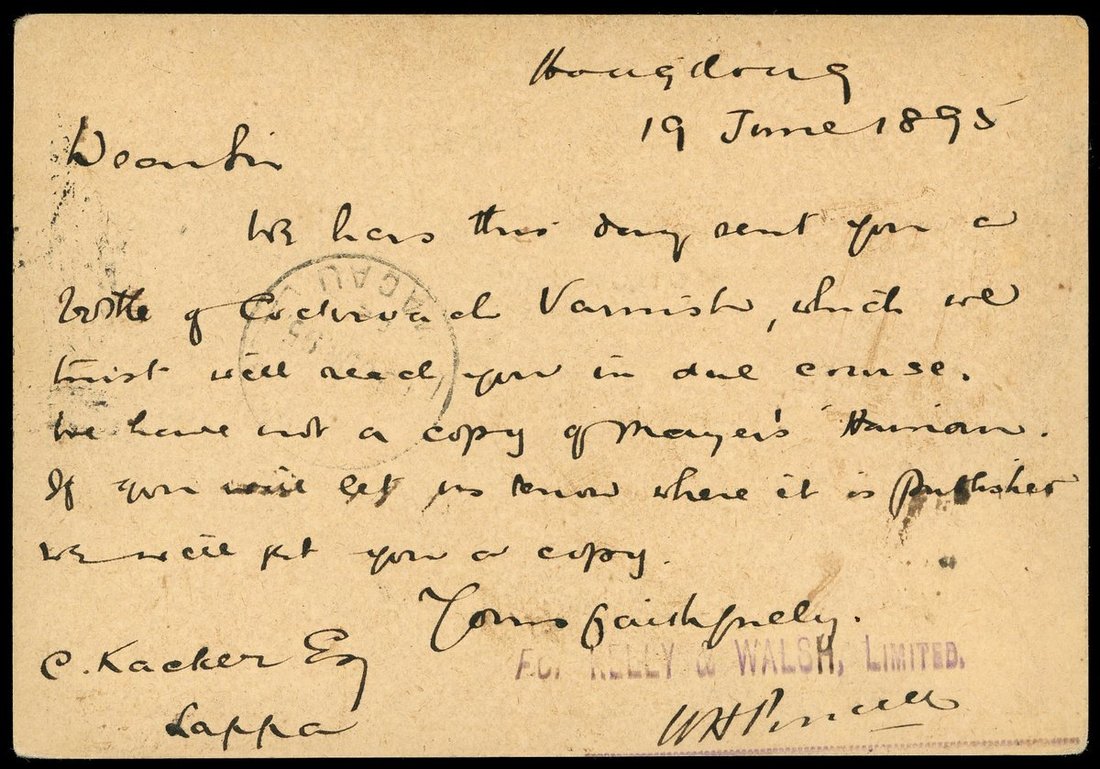 Hongkong
19 June 1895
Dear Sir
We have this day sent you a
bottle of Cockroach Varnish, which we
trust will reach you in due course.
We have not a copy of Mayer's Hainan.
If you will let us know where it is published
we will get you a copy.
Yours faithfully.
C. Kacker Esq
For KELLY & WALSH, LIMITED.
Lappa
MACAU